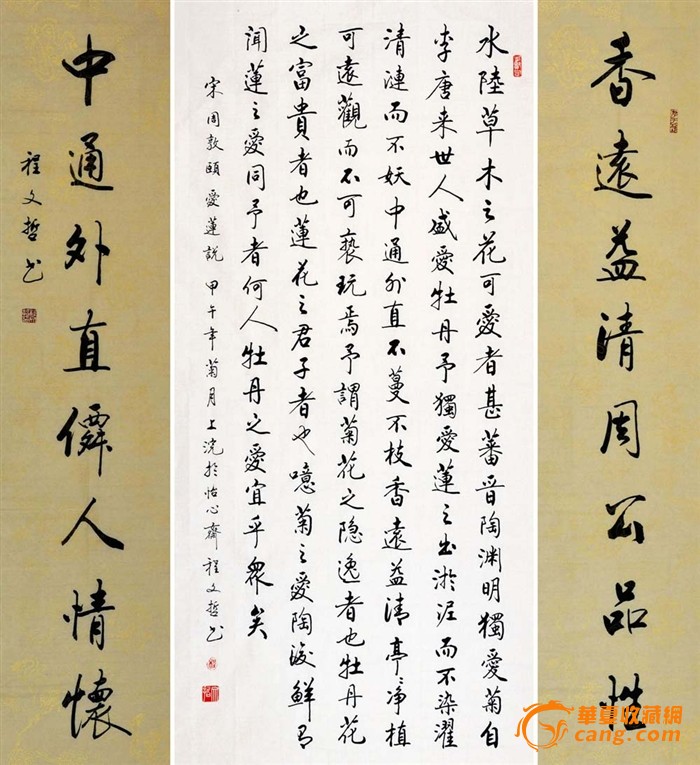 香遠益清周公品性
水陸草木之花可愛者甚蕃晋陶渊明獨愛菊自
李唐来世人盛愛牡丹予獨愛蓮之出淤泥而不染濯
清漣而不妖中通外直不蔓不枝香遠益清亭净植
可遠觀而不可亵玩焉予謂菊花之隐逸者也牡丹花
之富貴者也蓮花之君子者也噫菊之愛陶後鮮有
聞蓮之愛同予者何人牡丹之愛宜乎衆矣
宋周敦頤愛蓮説 甲午年菊月上浣於怡心齋程文哲书
中通外直僊人情懷
程文哲书
華夏收藏網
cang.com